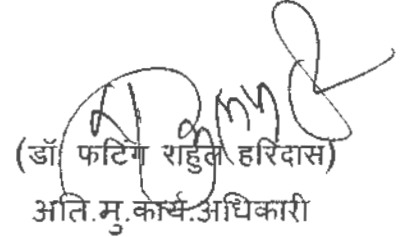 (डॉ. फटिंग राहुल हरिदास)
अति.मु.कार्य.अधिकारी